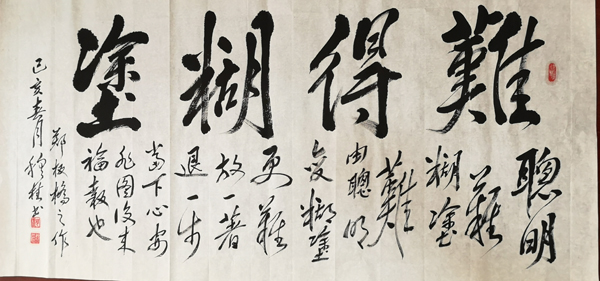 難得糊塗
聰明
難
糊塗
難
由聰明
糊塗
更難
放一著
退一步
當下心安
非圖後來
福報也
鄭板橋之作
己亥春月 書